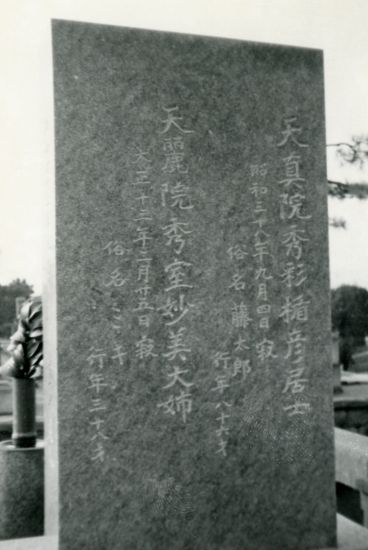 天真院秀彩楯彦居士
昭和三十八年九月四日寂
俗名 藤太郎
行年八十六才
天麗院秀室妙美大姉
大正十三年二月廿五日寂
俗名 ミキ
行年三十八才